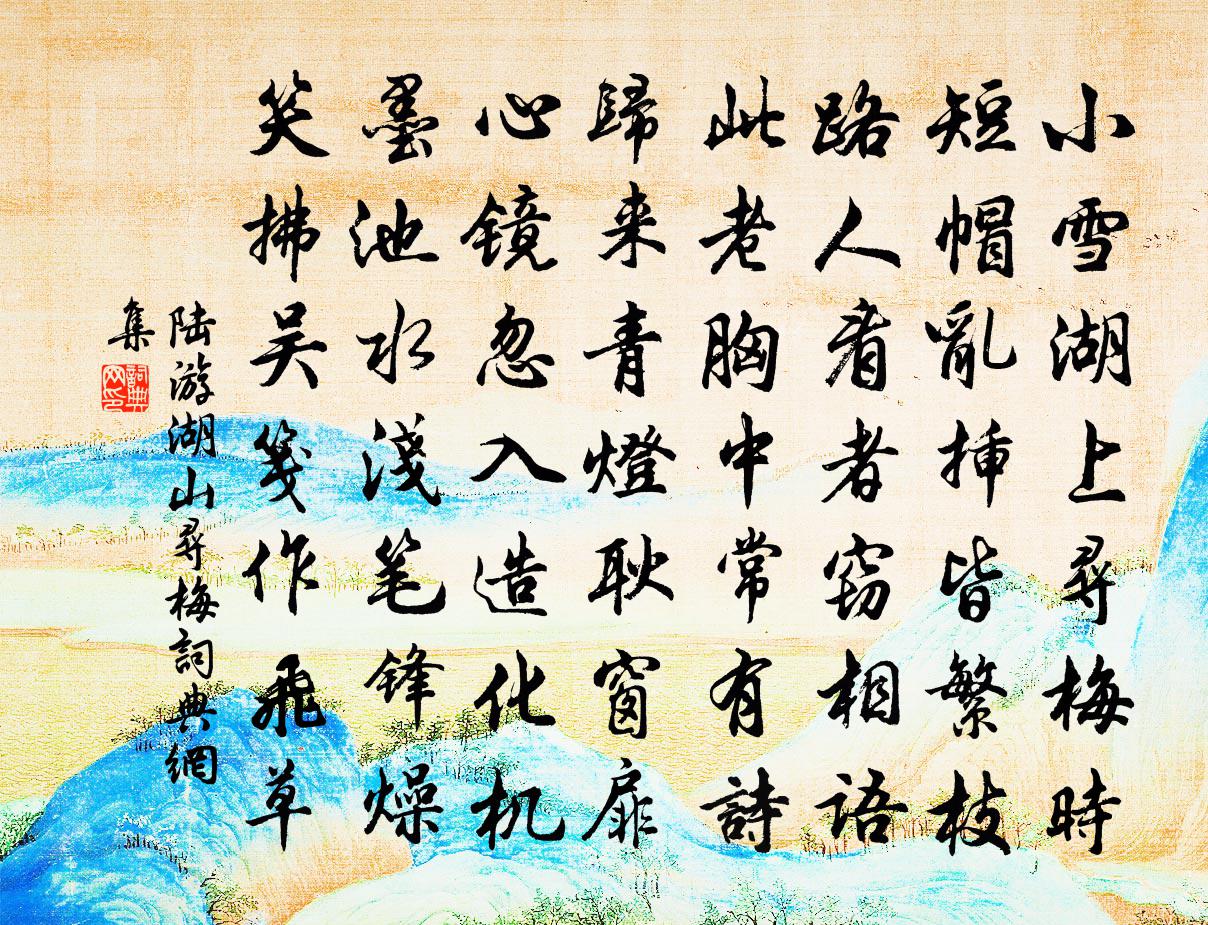 小雪湖上尋梅時
短帽亂揷皆繁枝
路人看者窃相语
此老胸中常有詩
歸来青燈耿窗扉
心镜忽入造化机
墨池水淺笔锋燥
笑拂吴笺作飛草
陆游湖山尋梅詞典網
集
詞典
网印